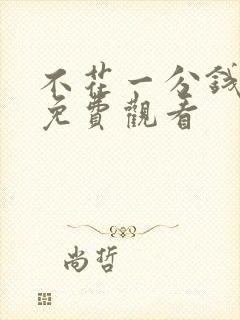 不花一分錢
免費觀看
尚哲